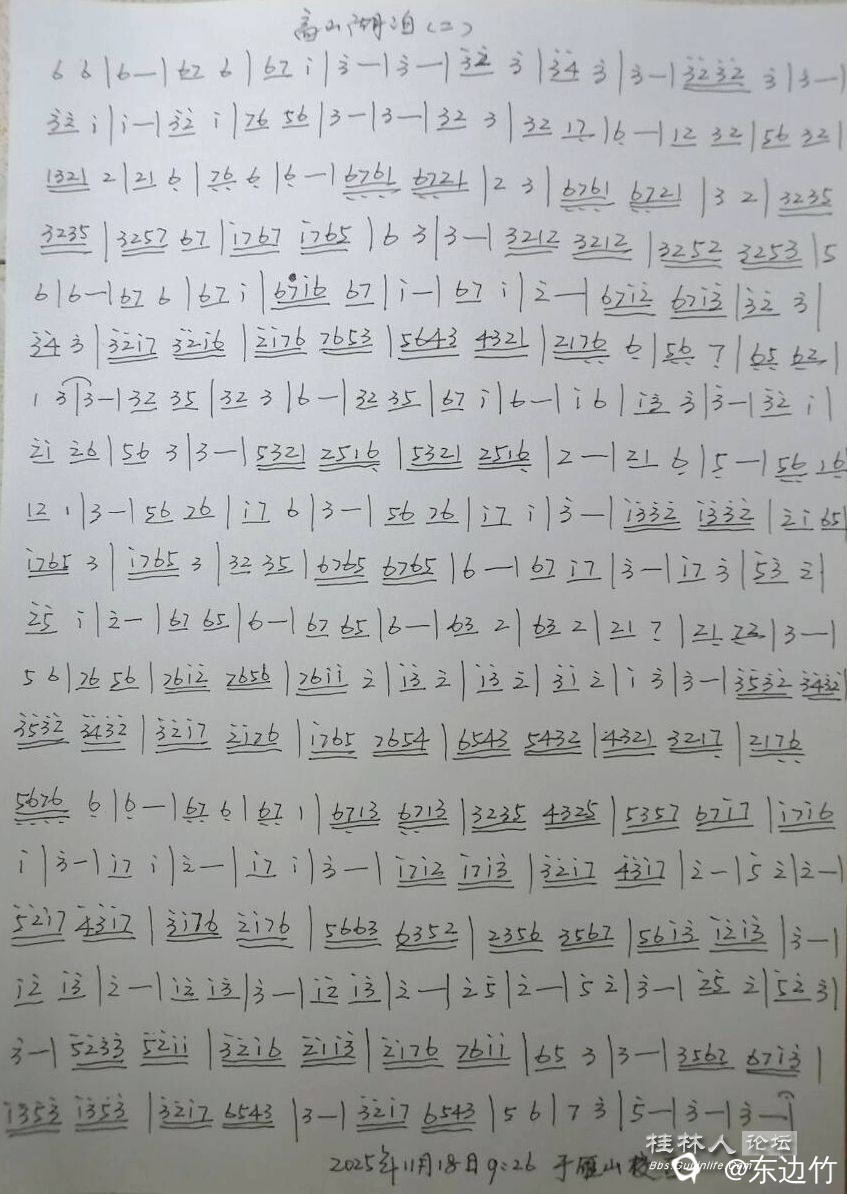 高山湖泊(二)
6 6 | 6 — | 67 6 | 67 i | 3̇ — | 3̇ — | 3̇2̇ 3̇ | 3̇4̇ 3̇ | 3̇ — | 3̇2̇3̇2̇ 3̇ | 3̇ — |
3̇2̇ i | i — | 3̇2̇ i | 76 56 | 3 — | 3 — | 32 3 | 32 17̣ | 6̣ — | 12 32 | 56 32 |
1321 2 | 21 6̣ | 7̣6̣ 6̣ | 6̣ — | 6̣7̣6̣1 6̣7̣21 | 2 3 | 6̣7̣6̣1 6̣7̣21 | 3 2 | 3235
3235 | 3257 67 | i767 i765 | 6 3 | 3 — | 3212 3212 | 3252 3253 | 5
6 | 6 — | 67 6 | 67 i | 67i6 67 | i — | 67 i | 2̇ — | 67i2̇ 67i3̇ | 3̇2̇ 3̇ |
3̇4̇ 3̇ | 3̇2̇i7 3̇2̇i6 | 2̇i76 7653 | 5643 4321 | 217̣6̣ 6̣ | 5̣6̣ 7̣ | 6̣5̣ 6̣2 |
1 3 | 3 — | 32 35 | 32 3 | 6 — | 32 35 | 67 i | 6 — | i 6 | i3̇ 3̇ | 3̇ — | 3̇2̇ i |
2̇i 2̇6 | 56 3 | 3 — | 5321 2516̣ | 5321 2516̣ | 2 — | 21 6̣ | 5̣ — | 5̣6̣ 16̣
12 1 | 3 — | 56 76 | i7 6 | 3 — | 56 76 | i7 i | 3̇ — | i3̇3̇2̇ i3̇3̇2̇ | 2̇i 65 |
i765 3 | i765 3 | 32 35 | 6765 6765 | 6 — | 67 i7 | 3̇ — | i7 3̇ | 5̇3̇ 2̇ |
2̇5̇ i | 2̇ — | 67 65 | 6 — | 67 65 | 6 — | 63 2 | 63 2 | 21 7̣ | 21 23 | 3 — |
5 6 | 76 56 | 76i2̇ 7656 | 76ii 2̇ | i3̇ 2̇ | i3̇ 2̇ | 3̇i 2̇ | i 3̇ | 3̇ — | 3̇5̇3̇2̇ 3̇4̇3̇2̇ |
3̇5̇3̇2̇ 3̇4̇3̇2̇ | 3̇2̇i7 2̇i76 | i765 7654 | 6543 5432 | 4321 3217̣ | 217̣6̣
5̣6̣7̣6̣ 6̣ | 6̣ — | 6̣7̣ 6̣ | 6̣7̣ 1 | 6̣7̣13 6̣7̣13 | 3235 4325 | 5357 67i7 | i7i6
i | 3̇ — | i7 i | 2̇ — | i7 i | 3̇ — | i7i2̇ i7i3̇ | 3̇2̇i7 4̇3̇i7 | 2̇ — | 5̇ 2̇ | 2̇ — |
5̇2̇i7 4̇3̇i7 | 3̇i76 2̇i76 | 5663 6352 | 2356 3567 | 56i3̇ i2̇i3̇ | 3̇ — |
i2̇ i3̇ | 2̇ — | i2̇ i3̇ | 3̇ — | i2̇ i3̇ | 2̇ — | 2̇ 5̇ | 2̇ — | 5̇ 2̇ | 3̇ — | 2̇5̇ 2̇ | 5̇2̇ 3̇ |
3̇ — | 5̇2̇3̇3̇ 5̇2̇ii | 3̇2̇i6 2̇ii3̇ | 2̇i76 76ii | 65 3 | 3 — | 3567 67i3̇ |
i3̇5̇3̇ i3̇5̇3̇ | 3̇2̇i7 6543 | 3 — | 3̇2̇i7 6543 | 5 6 | 7 3̇ | 5̇ — | 3̇ — | 3̇ — |
2025年11月18日9:26 于雁山校
桂林人论坛
Bbs.Guilinlife.com
@东边竹